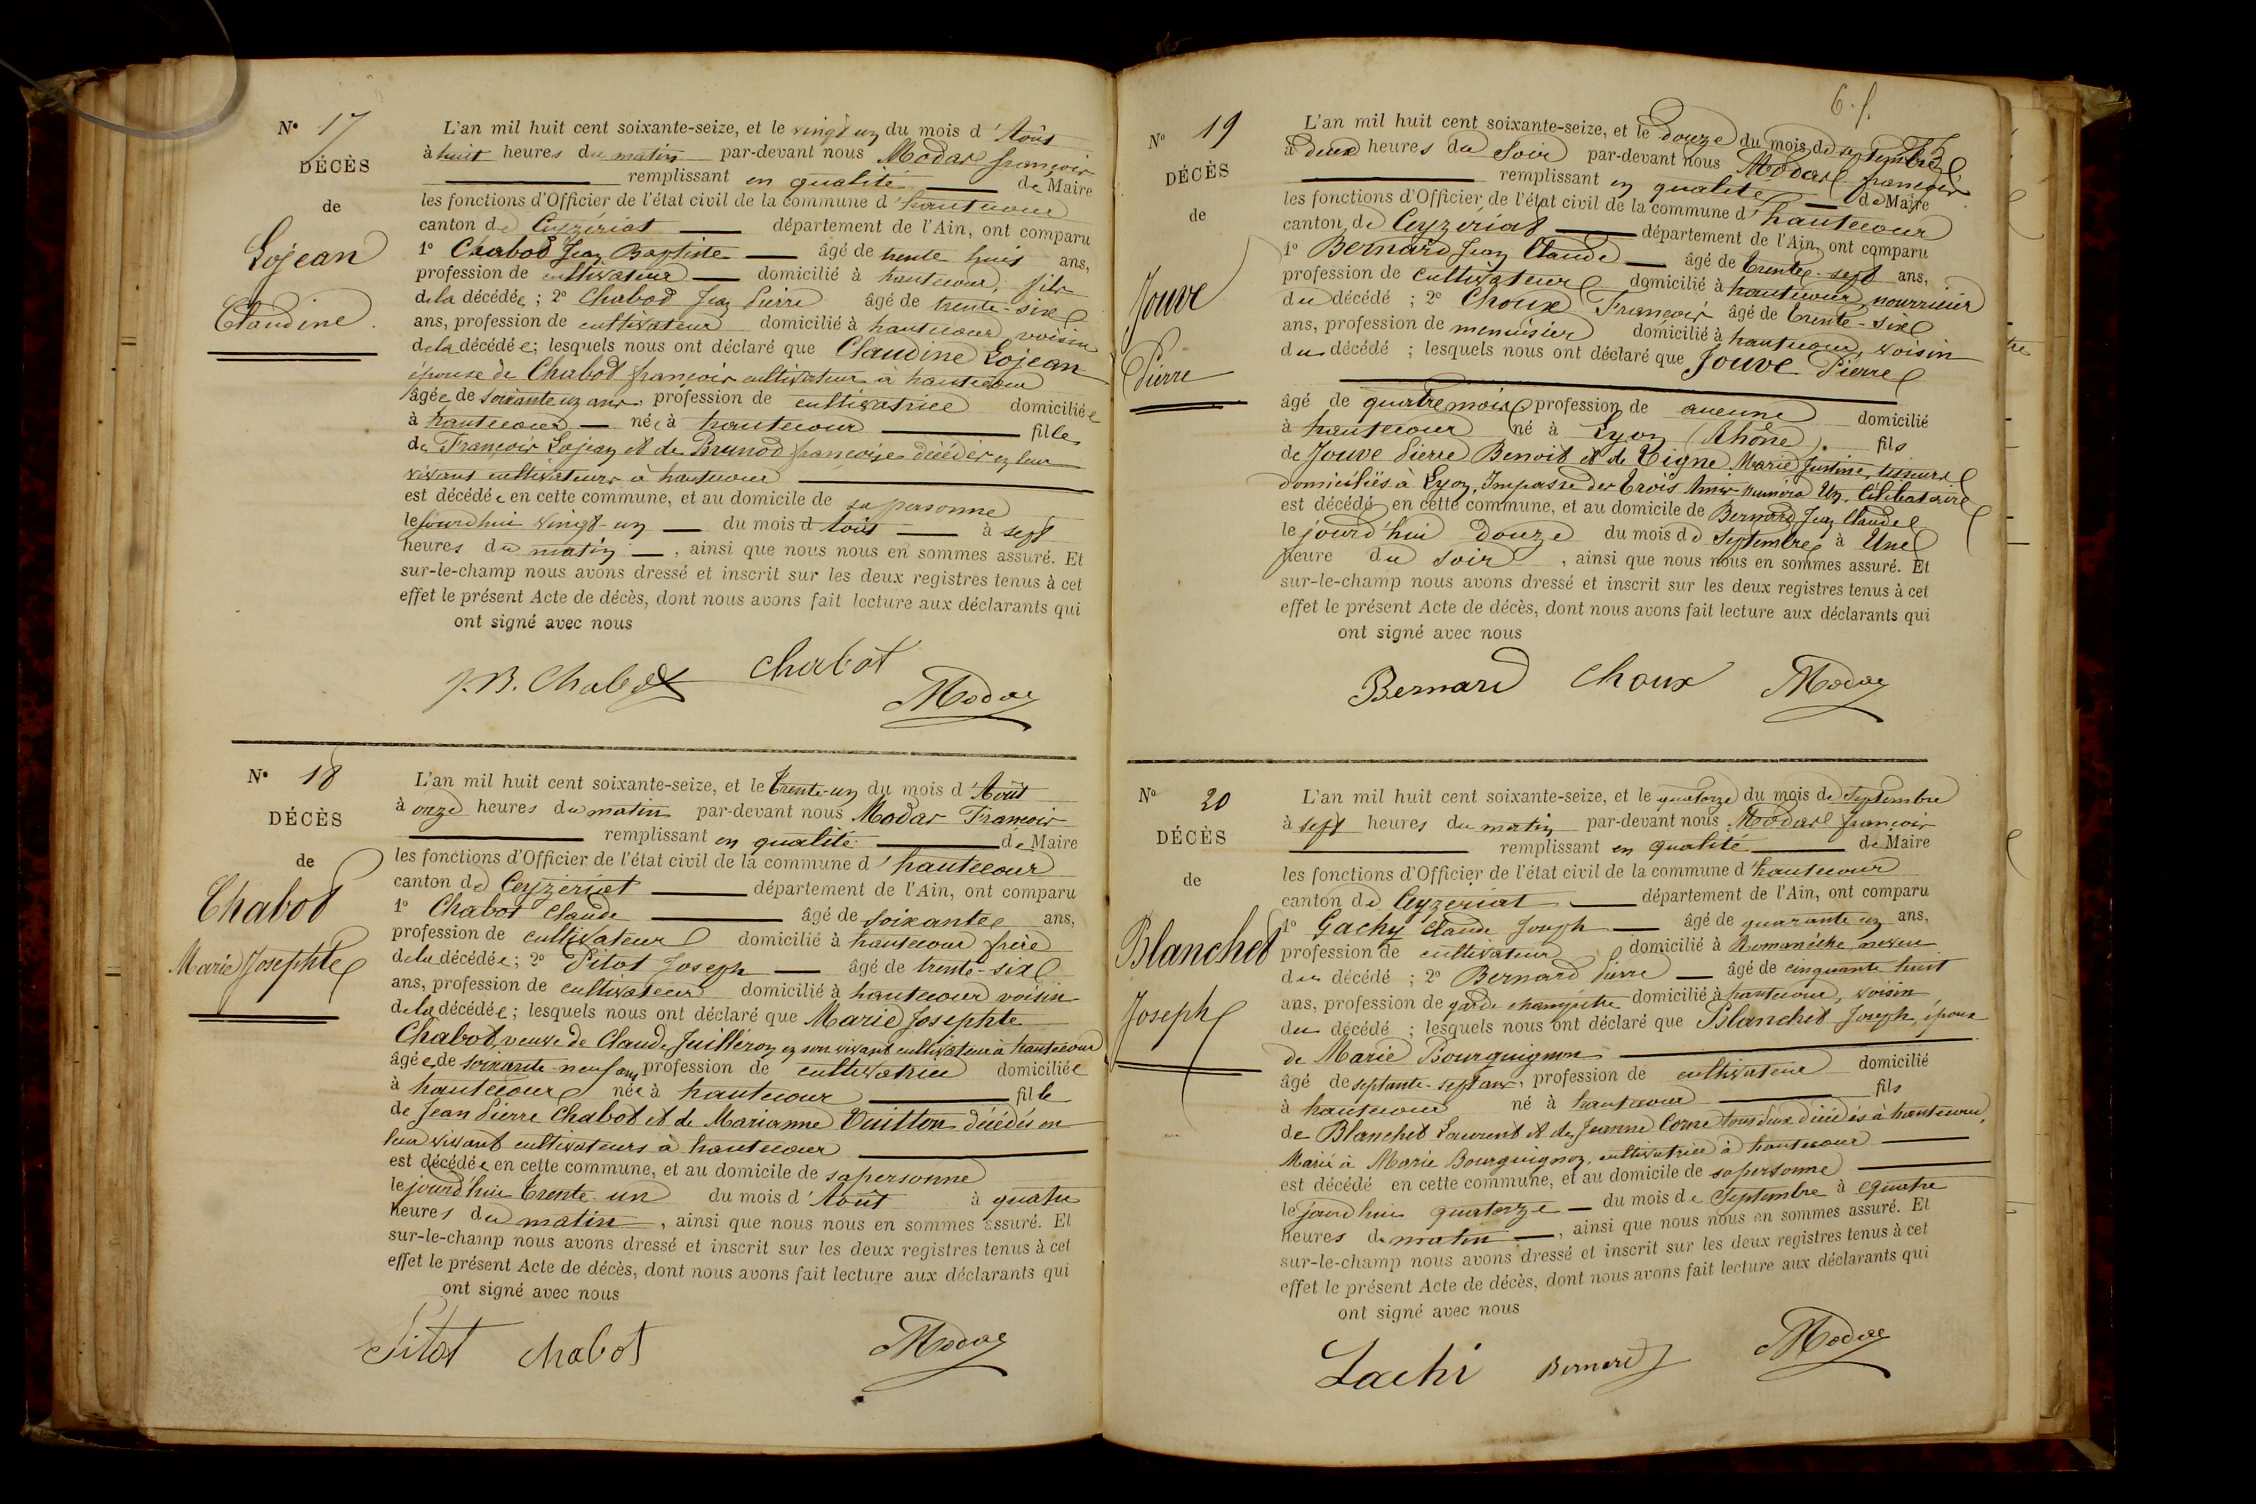 Nº 17
DÉCÈS
de
Lojean
Claudine
L'an mil huit cent soixante-seize, et le vingt un du mois d'Août
à huit heures du matin par-devant nous Modas françois
remplissant en qualité de Maire
les fonctions d'Officier de l'état civil de la commune d'hautecour
canton de Ceyzériat département de l'Ain, ont comparu
1º Chabod Jean Baptiste âgé de trente huit ans,
profession de cultivateur domicilié à hautecour, fils
de la décédée ; 2º Chabod Jean Pierre âgé de trente-six
ans, profession de cultivateur domicilié à hautecour voisin
de la décédée ; lesquels nous ont déclaré que Claudine Lojean
épouse de Chabod françois cultivateur à hautecour
âgée de soixante un ans, profession de cultivatrice domiciliée
à hautecour née à hautecour fille
de François Lojean et de Brunod françoise décédés en leur
vivant cultivateurs à hautecour
est décédée en cette commune, et au domicile de sa personne
le jourd'hui vingt-un du mois d'Août à sept
heures du matin, ainsi que nous nous en sommes assuré. Et
sur-le-champ nous avons dressé et inscrit sur les deux registres tenus à cet
effet le présent Acte de décès, dont nous avons fait lecture aux déclarants qui
ont signé avec nous
J. B. Chabod Chabot
Modas
Nº 18
DÉCÈS
de
Chabod
Marie Josephte
L'an mil huit cent soixante-seize, et le trente-un du mois d'Août
à onze heures du matin par-devant nous Modas François
remplissant en qualité de Maire
les fonctions d'Officier de l'état civil de la commune d'hautecour
canton de Ceyzériat département de l'Ain, ont comparu
1º Chabod Claude âgé de soixante ans,
profession de cultivateur domicilié à hautecour frère
de la décédée ; 2º Pitot Joseph âgé de trente-six
ans, profession de cultivateur domicilié à hautecour voisin
de la décédée ; lesquels nous ont déclaré que Marie Josephte
Chabod, veuve de Claude Juilléron en son vivant cultivateur à hautecour
âgée de soixante-neuf ans profession de cultivatrice domiciliée
à hautecour née à hautecour fille
de Jean Pierre Chabod et de Marianne Vuitton décédés en
leur vivant cultivateurs à hautecour
est décédée en cette commune, et au domicile de sa personne
le jourd'hui trente-un du mois d'Août à quatre
heures du matin, ainsi que nous nous en sommes assuré. Et
sur-le-champ nous avons dressé et inscrit sur les deux registres tenus à cet
effet le présent Acte de décès, dont nous avons fait lecture aux déclarants qui
ont signé avec nous
Pitot Chabot Modas
6. f.
Nº 19
DÉCÈS
de
Jouve
Pierre
L'an mil huit cent soixante-seize, et le douze du mois de septembre
à deux heures du soir par-devant nous Modas françois
remplissant en qualité de Maire
les fonctions d'Officier de l'état civil de la commune d'hautecour
canton de Ceyzériat département de l'Ain, ont comparu
1º Bernard Jean Claude âgé de trente-sept ans,
profession de cultivateur domicilié à hautecour nourricier
du décédé ; 2º Choux François âgé de trente-six
ans, profession de menuisier domicilié à hautecour, voisin
du décédé ; lesquels nous ont déclaré que Jouve Pierre
âgé de quatre mois profession de aucune domicilié
à hautecour né à Lyon (Rhône). fils
de Jouve Pierre Benoit et de Tigne Marie Justine, tisseurs
domiciliés à Lyon, Impasse des trois Amis numéro Un, Célibataire
est décédé en cette commune, et au domicile de Bernard Jean Claude
le jourd'hui douze du mois de septembre à Une
heure du soir, ainsi que nous nous en sommes assuré. Et
sur-le-champ nous avons dressé et inscrit sur les deux registres tenus à cet
effet le présent Acte de décès, dont nous avons fait lecture aux déclarants qui
ont signé avec nous
Bernard Choux Modas
Nº 20
DÉCÈS
de
Blanchet
Joseph
L'an mil huit cent soixante-seize, et le quatorze du mois de septembre
à sept heures du matin par-devant nous Modas françois
remplissant en qualité de Maire
les fonctions d'Officier de l'état civil de la commune d'hautecour
canton de Ceyzériat département de l'Ain, ont comparu
1º Gachy Claude Joseph âgé de quarante un ans,
profession de cultivateur domicilié à Romanèche, neveu
du décédé ; 2º Bernard Pierre âgé de cinquante huit
ans, profession de garde champêtre domicilié à hautecour, voisin
du décédé ; lesquels nous ont déclaré que Blanchet Joseph, époux
de Marie Bourguignon
âgé de septante-sept ans, profession de cultivateur domicilié
à hautecour né à hautecour fils
de Blanchet Laurent et de Jeanne Corne tous deux décédés à hautecour,
Marié à Marie Bourguignon, cultivatrice à hautecour
est décédé en cette commune, et au domicile de sa personne
le jourd'hui quatorze du mois de septembre à quatre
heures du matin, ainsi que nous nous en sommes assuré. Et
sur-le-champ nous avons dressé et inscrit sur les deux registres tenus à cet
effet le présent Acte de décès, dont nous avons fait lecture aux déclarants qui
ont signé avec nous
Gachi Bernard Modas